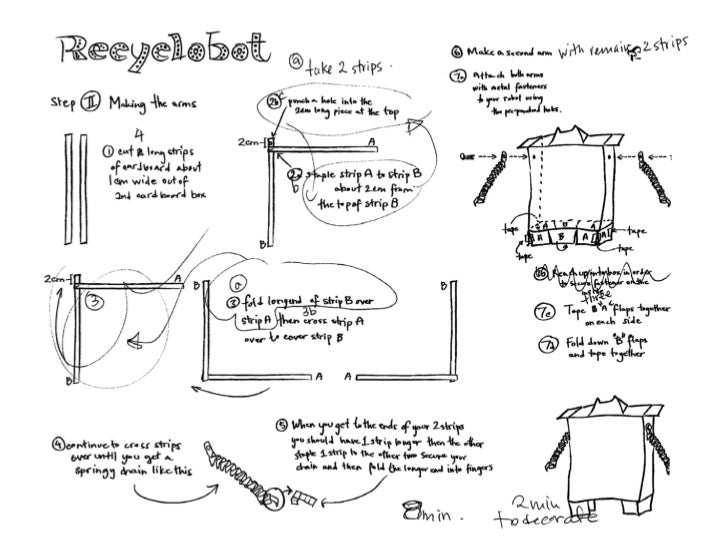 Recyclobot
a take 2 strips.
Step II Making the arms
4
1 cut 8 long strips
of cardboard about
1cm wide out of
2nd cardboard box
2b c punch a hole into the
2cm long piece at the top
2cm
B
A
2a staple strip A to strip B
b
about 2cm from
the top of strip B
B
6 Make a second arm with remaing 2 strips
7a Attach both arms
with metal fasteners
to your robot using
the prepunched holes.
tape
A B A
A B A A
tape
tape
tape
7b Reach up into box in order
to secure fastener on the
inside
three
7c Tape "B" "A" flaps together
on each side
7d Fold down "B" flaps
and tape together
2cm
A
3
B
B
A
a
3 fold long end of strip B over
strip A then cross strip A
3b
over to cover strip B
B
A
4 continue to cross strips
over until you get a
springy chain like this
5 When you get to the ends of your 2 strips
you should have 1 strip longer then the other
staple 1 strip to the other two secure your
chain and then fold the longer end into fingers
8min.
2min
to decorate